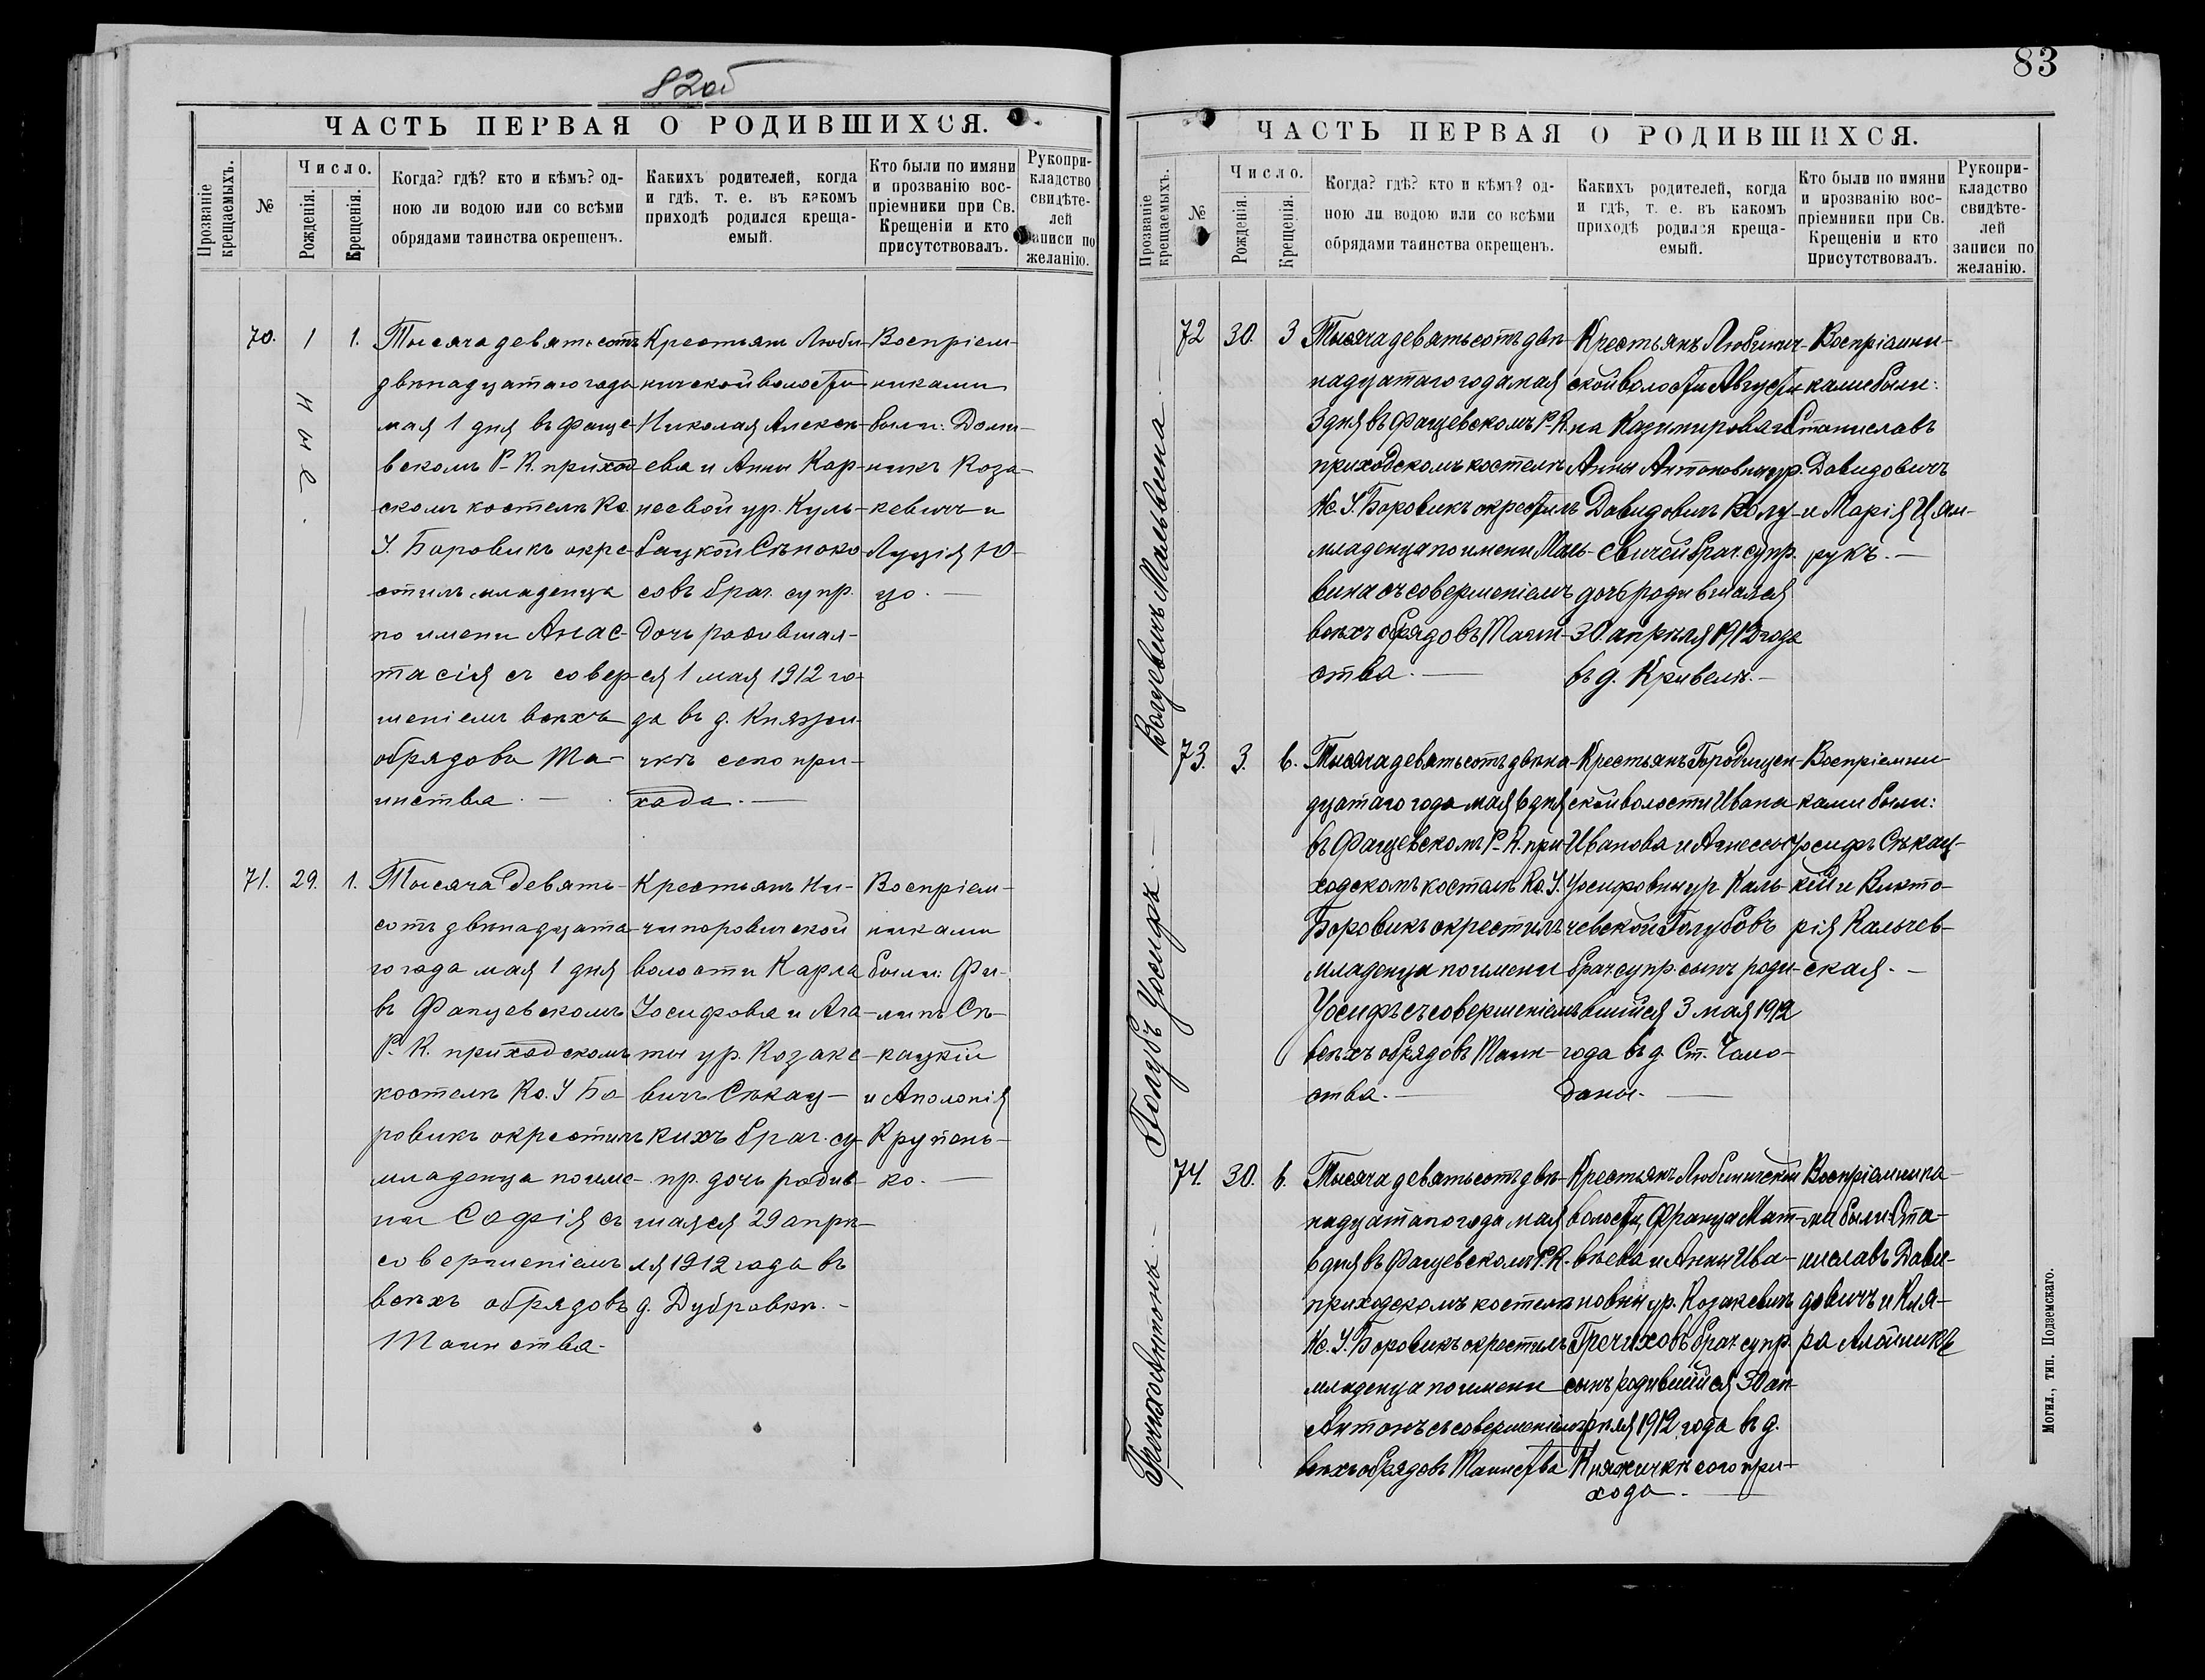 82об
ЧАСТЬ ПЕРВАЯ О РОДИВШИХСЯ.
Прозваніе крещаемыхъ.
№
Число.
Рожденія.
Крещенія.
Когда? гдѣ? кто и кѣмъ? од-
ною ли водою или со всѣми
обрядами таинства окрещенъ.
Какихъ родителей, когда
и гдѣ, т. е. въ какомъ
приходѣ родился креща-
емый.
Кто были по имяни
и прозванію вос-
пріемники при Св.
Крещеніи и кто
присутствовалъ.
Рукопри-
кладство
свидѣте-
лей
записи по
желанію.
70.
1
1.
Тысяча девятьсотъ
двѣнадцатаго года
мая 1 дня въ Фаще-
вскомъ Р-К. приход-
скомъ костелѣ Кс.
У. Боровикъ окре-
стилъ младенца
по имени Анас-
тасія съ совер-
шеніемъ всѣхъ
обрядовъ Та-
инства.
Крестьянъ Люби-
ничской волости
Николая Алексѣ-
ева и Анны Кар-
неевой ур. Куль-
бацкой Сѣноко-
совъ брач. супр.
дочь родившая-
ся 1 мая 1912 го-
да въ д. Княжи-
чкѣ сего при-
хода.
Воспріем-
никами
были: Доми-
никъ Коза-
кевичъ и
Луція Ю-
цо.
71.
29.
1.
Тысяча девять-
сотъ двѣнадцата-
го года мая 1 дня
въ Фащевскомъ
Р. К. приходскомъ
костелѣ Кс. У Бо-
ровикъ окрестилъ
младенца по име-
ни Софія съ
совершеніемъ
всѣхъ обрядовъ
Таинства.
Крестьянъ Ни-
чипоровичской
волости Карла
Іосифова и Ага-
ты ур. Козаке-
вичъ Сѣкац-
кихъ брач. су-
пр. дочь родив-
шаяся 29 апрѣ-
ля 1912 года въ
д. Дубровкѣ.
Воспріем-
никами
были: Фи-
липъ Сѣ-
кацкій
и Аполонія
Крупень-
ко.
83
ЧАСТЬ ПЕРВАЯ О РОДИВШИХСЯ.
Прозваніе крещаемыхъ.
№
Число.
Рожденія.
Крещенія.
Когда? гдѣ? кто и кѣмъ? од-
ною ли водою или со всѣми
обрядами таинства окрещенъ.
Какихъ родителей, когда
и гдѣ, т. е. въ какомъ
приходѣ родился креща-
емый.
Кто были по имяни
и прозванію вос-
пріемники при Св.
Крещеніи и кто
присутствовалъ.
Рукопри-
кладство
свидѣте-
лей
записи по
желанію.
Мальвина.
72
30.
3
Тысяча девятьсотъ двѣ-
надцатаго года мая
3 дня въ Фащевскомъ Р-К.
приходскомъ костелѣ
Кс. У. Боровикъ окрестилъ
младенца по имени Маль-
вина съ совершеніемъ
всѣхъ обрядовъ Таин-
ства.
Крестьянъ Любинич-
ской волости Августи-
на Казимировага
Анны Антоновны ур.
Давидовичъ
брач. супр.
дочь родившаяся
30. апрѣля 1912 года
въ д. Кривелѣ.
Воспріемни-
ками были:
Станиславъ
Давидовичъ
и Марія Цям-
рукъ.
Голубъ Іосифъ.
73.
3.
6.
Тысяча девятьсотъ двѣна-
дцатаго года мая 6 дня
въ Фащевскомъ Р-К. при-
ходскомъ костелѣ Кс. У.
Боровикъ окрестилъ
младенца по имени
Іосифъ съ совершеніемъ
всѣхъ обрядовъ Таин-
ства.
Крестьянъ Городищен-
ской волости Ивана
Иванова и Агнессы
Іосифовны ур. Каль-
чевской Голубовъ
брач супр. сынъ роди-
вшійся 3 мая 1912
года въ д. Ст. Чамо-
даны.
Воспріемни-
ками были:
Іосифъ Сѣкац-
кій и Викто-
рія Кальчев-
ская.
Гречиха Антонъ.
74.
30.
6.
Тысяча девятьсотъ двѣ-
надцатаго года мая
6 дня въ Фащевскомъ Р. К.
приходскомъ костелѣ
Кс. У. Боровикъ окрестилъ
младенца по имени
Антонъ съ совершеніемъ
всѣхъ обрядовъ Таинства
Крестьянъ Любиничской
волости, Франца Мат-
вѣева и Анны Ива-
новны ур. Козакевичъ
Гречиховъ брач. супр.
сынъ родившійся 30 ап-
рѣля 1912 года въ д.
Княжичкѣ сего при-
хода.
Воспріемника-
ми были: Ста-
ниславъ Дави-
довичъ и Кля-
ра
Могил., тип. Подземскаго.